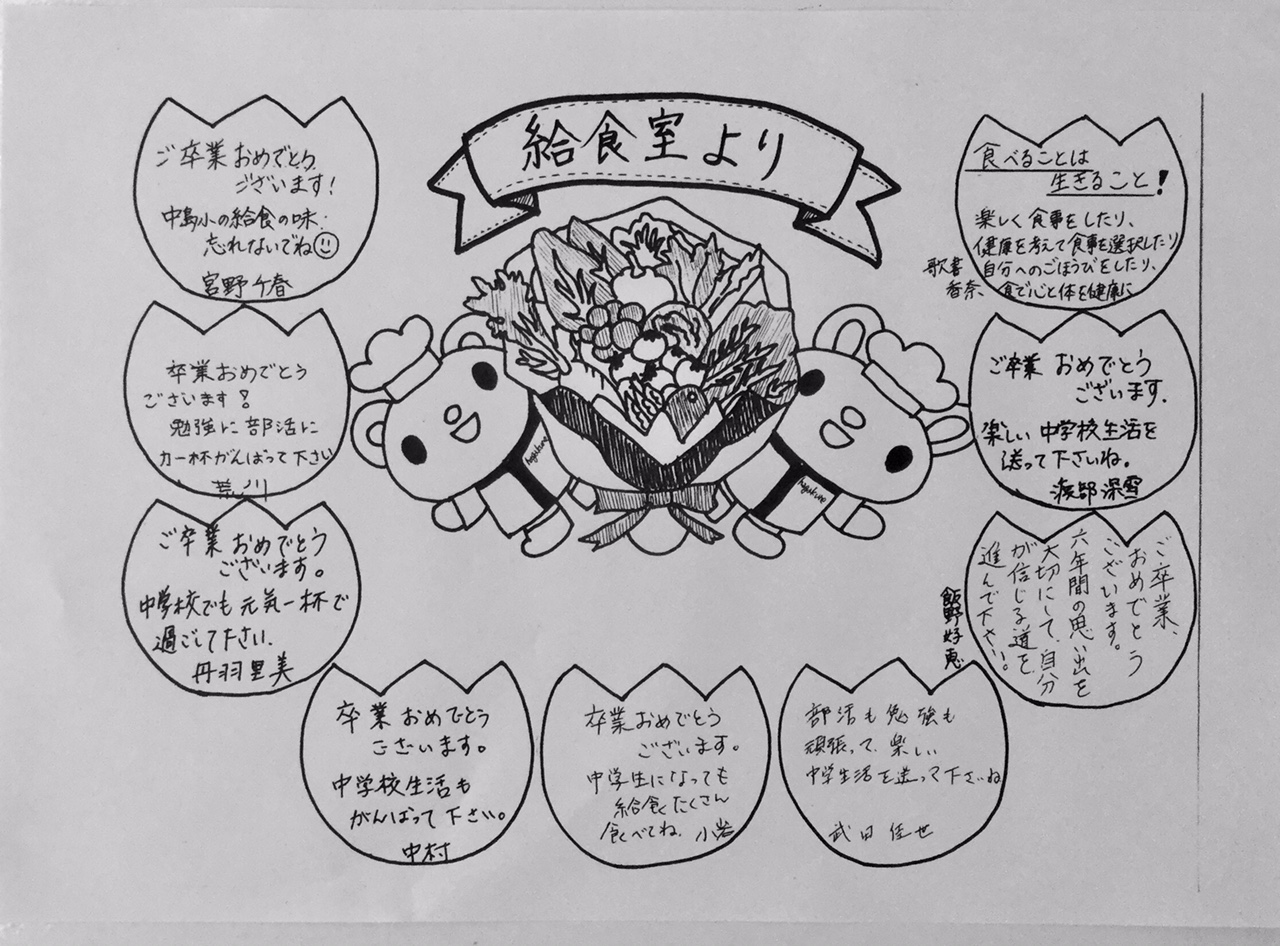 給食室より
ご卒業おめでとう
ございます!
中島小の給食の味.
忘れないでね
宮野千春
卒業おめでとう
ございます!
勉強に部活に
力一杯がんばって下さい
荒川
ご卒業おめでとう
ございます。
中学校でも元気一杯で
過ごして下さい.
丹羽里美
卒業おめでとう
ございます。
中学校生活も
がんばって下さい。
中村
卒業おめでとう
ございます。
中学生になっても
給食たくさん
食べてね.
小岩
部活も勉強も
頑張って、楽しい
中学生活を送って下さいね
武田佳世
食べることは
生きること!
楽しく食事をしたり、
健康を考えて食事を選択したり
自分へのごほうびをしたり、
食で心と体を健康に
歌書
香奈
ご卒業おめでとう
ございます.
楽しい中学校生活を
送って下さいね。
渡部深雪
ご卒業、
おめでとう
ございます。
六年間の思い出を
大切にして、自分
が信じる道を
進んで下さい。
飯野好恵